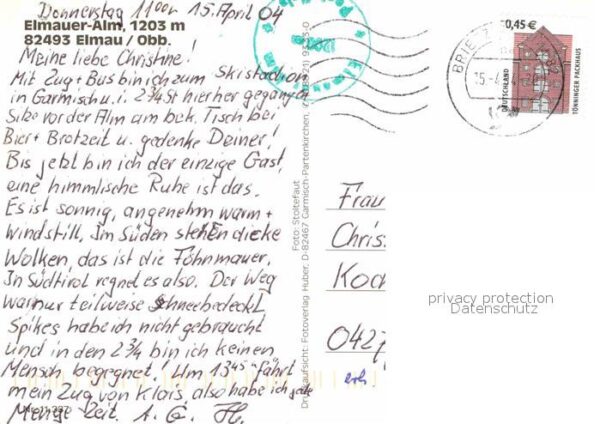 Donnerstag 11 00 Uhr 15. April 04
Elmauer-Alm, 1203 m
82493 Elmau / Obb.
Meine liebe Christine!
Mit Zug + Bus bin ich zum Skistadion
in Garmisch u. i. 2¾ St hierher gegangen
Sitze vor der Alm am bek. Tisch bei
Bier + Brotzeit u. gedenke Deiner!
Bis jetzt bin ich der einzige Gast,
eine himmlische Ruhe ist das.
Es ist sonnig, angenehm warm +
windstill, Im Süden stehen dicke
Wolken, das ist die Föhnmauer,
In Südtirol regnet es also. Der Weg
war nur teilweise schneebedeckt
Spikes habe ich nicht gebraucht
und in den 2¾ bin ich keinen
Menschen begegnet! Um 13 45 fährt
mein Zug von Klais, also habe ich
Menge Zeit. A. G. H.
Foto: Stoltefaut
Draufsicht: Fotoverlag Huber, D-82467 Garmisch-Partenkirchen,
0,45 €
DEUTSCHLAND
TÖNNINGER PACKHAUS
BRIEFZ
15.-4
Frau
Chris
Koc
0427
erh.
privacy protection
Datenschutz